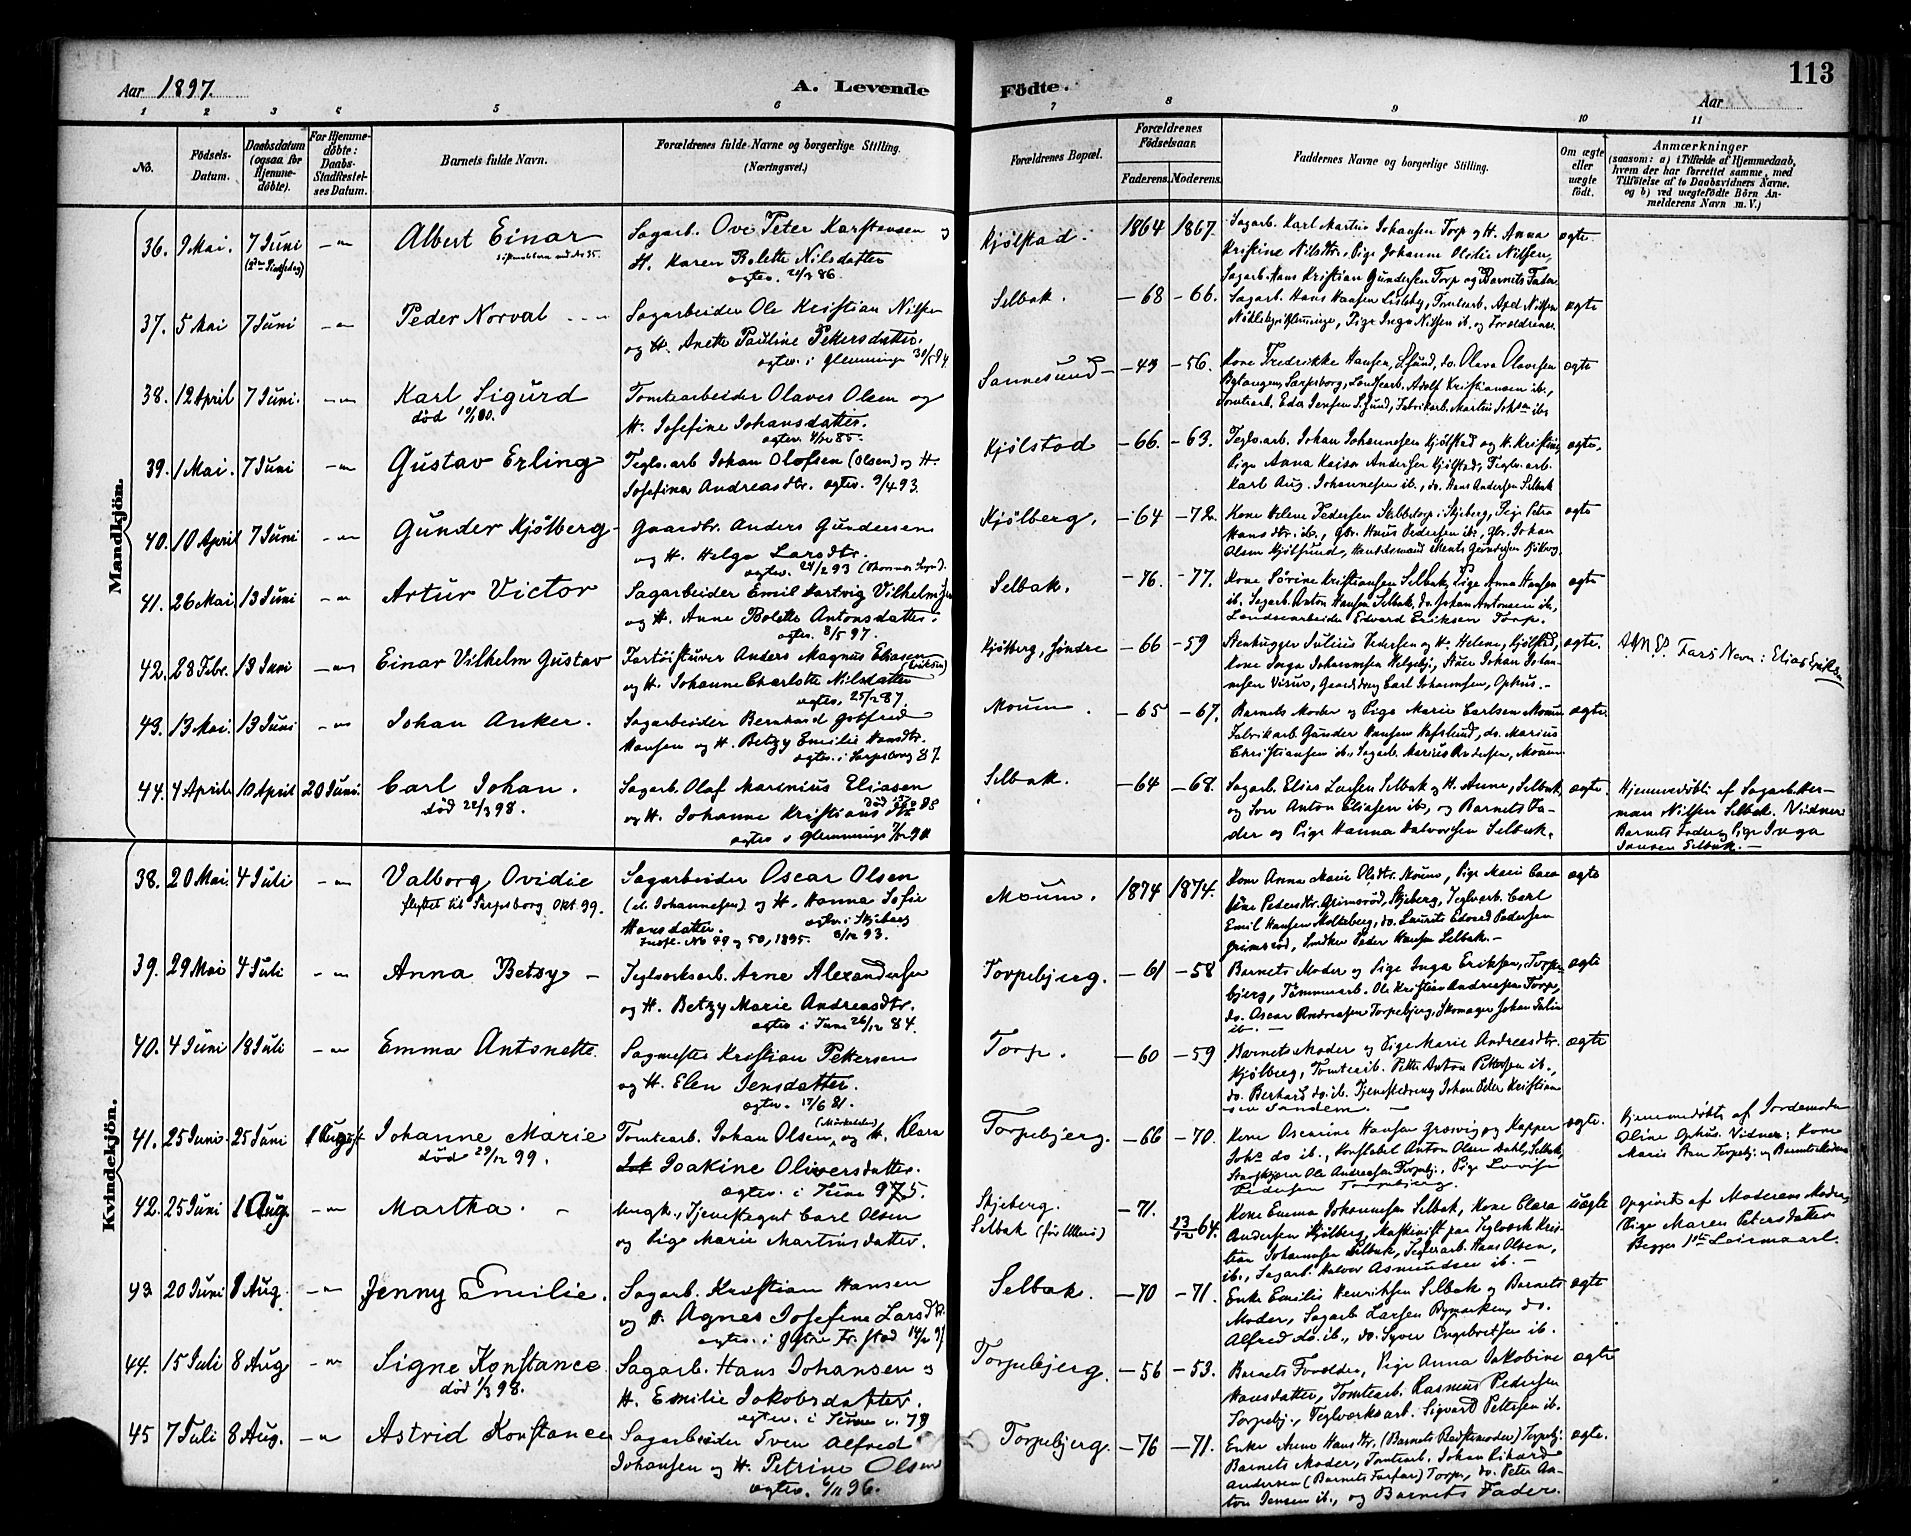 113
Aar 1897.
A. Levende
Födte.
Aar
1 2 3 4 5 6 7 8 9 10 11
No.
Födsels-
Datum.
Daabsdatum
(ogsaa for
Hjemme-
døbte).
For Hjemme-
døbte:
Daabs-
Stadfæstel-
ses Datum.
Barnets fulde Navn.
Forældrenes fulde Navne og borgerlige Stilling.
(Næringsvei.)
Forældrenes Bopæl.
Forældrenes
Födselsaar.
Faderens. Moderens.
Faddernes Navne og borgerlige Stilling.
Om ægte
eller
uægte
født.
Anmærkninger
(saasom: a) i Tilfælde af Hjemmedaab,
hvem der har forrettet samme, med
Tilföielse af to Daabsvidners Navne,
og b) ved uægtefödte Börn An-
melderens Navn m. V.)
Mandkjön.
36. 9 Mai. 7 Juni — Albert Einar Sagarb. Ove Peter Karstensen og Kjølstad. 1864 1867. Sagarb. Karl Martin Johansen Torp og H. Anna ægte
H. Karen Bolette Nilsdatter Kristine Nilsdtr., Pige Johanne Nilsen,
ægtev. 86. Sagarb. Hans Kristian Gundersen Torp og Barnets Fader
37. 5 Mai 7 Juni — Peder Norval Sagarbeider Ole Kristian Nilsen Selbak. —68 —66. Sagarb. Hans Hansen Lisleby, Tomtearb. Axel Nilsen ægte
og H. Anette Pauline Pettersdatter. Pige Inga Nilsen ib. og Forældrene.
ægtev. i Glemminge
38. 12 April 7 Juni. — Karl Sigurd Tomtearbeider Olaves Olsen og Sannesund —49 —56. Kone Fredrikke Hansen, Olava Olavesen ægte
død H. Josefine Johansdatter. Sarpsborg, Adolf Kristiansen ib.,
ægtev. 85.
39. 1 Mai. 7 Juni — Gustav Erling Teglv.arb Johan Olofsen (Olsen) og H. Kjølstad —66. —63. Teglv.arb. Johan Johannesen Kjølstad og H. Kristine, ægte.
Josefina Andreasdtr. ægtev. 9/4 93. Pige Anna Kajsa Andersen Kjølstad, Teglv.arb.
Karl Aug. Johannesen ib., do. Hans Andersen Selbak
40. 10 April 7 Juni — Gunder Kjølberg Gaardbr. Anders Gundersen Kjølberg. —64 —72. Kone Helene Pedersen i Skjeberg, Pige Petra ægte
og H. Helga Larsdtr. Hansdtr. ib., Gbr. Hans Pedersen ib., Gbr. Johan
ægtev. 93 Olsen
41. 26 Mai 13 Juni — Artur Victor Sagarbeider Emil Hartvig Vilhelmsen Selbak. —76. —77. Kone Sørine Kristiansen Selbak, Pige Anna Hansen ægte
og H. Anne Bolette Antonsdatter. ib. Sagarb. Anton Hansen Selbak, do. Johan Antonsen ib.,
ægtev. 8/5 97. Landsearbeider Edvard Eriksen Torp.
42. 28 Febr. 13 Juni — Einar Vilhelm Gustav Anders Magnus Eliasen (Eriksen) Kjølberg, Søndre —66 —59 Stenhugger Julius Pedersen og H. Helene, Kjølstad, ægte. Fars Navn: Elias Eriksen
og H. Johanne Charlotte Nilsdatter Kone Inga Johannesen
ægtev. 87. Carl Johannesen, Ophus. —
43. 13 Mai. 13 Juni — Johan Anker. Sagarbeider Bernhard Gotfred Moum. —65 —67. Barnets Moder og Pige Marie Carlsen Moum ægte.
Hansen og H. Betzy Emilie Hansdtr. Fabrikarb. Gunder Hansen Hafslund, do. Marius
ægtev. i Sarpsborg 87. Christiansen ib., Sagarb. Marius Andersen, Moum
44. 4 April. 10 April 20 Juni. Carl Johan. Sagarb. Olaf Marinius Eliasen Selbak. —64 —68. Sagarb. Elias Larsen Selbak og H. Anne, Selbak ægte. Hjemmedøbt af Sagarb. Her-
død 22/3 98. og H. Johanne Kristiansdtr. og Søn Anton Eliasen ib., og Barnets Fa- man Nilsen Selbak. Vidner
ægtev. i Glemminge der og Pige Hanna Halvorsen Selbak. Barnets Fader og Pige Inga
Jansen Selbak. —
Kvindekjön.
38. 20 Mai. 4 Juli — Valborg Ovidie Sagarbeider Oscar Olsen Moum. 1874 1874. Kone Anna Marie Olsdtr. Moum, Pige Marie ægte
flyttet til Sarpsborg Okt. 99. (el. Johannesen) og H. Hanna Sofie Pedersdtr. Grimsrød, Skjeberg, Teglv.arb. Carl
Hansdatter. ægtev. i Skjeberg Emil Hansen do. Laurits Edvard Pedersen
No 49 og 50, 1895. 93. Grimsrød, Peder Hansen Selbak. —
39. 29 Mai 4 Juli — Anna Betzy — Teglverksarb. Arne Alexandersen Torpebjerg. —61 —58 Barnets Moder og Pige Inga Eriksen, Torpe- ægte
og H. Betzy Marie Andreasdtr. bjerg, Tømmerarb. Ole Kristian Andreasen Torp,
ægtev. i Tune 26/12 84. do. Oscar Andreasen Torpebjerg, Skomager Johan
ib. —
40. 4 Juni 18 Juli — Emma Antonette. Sagmester Kristian Pettersen Torp. —60 —59 Barnets Moder og Pige Marie Andreasdtr. ægte
og H. Elen Jensdatter. Kjølberg, Tomtearb. Petter Anton Pettersen ib.,
ægtev. 17/6 81. do. Berhard do. ib. Tjenestedreng Johan Peter Kristian-
sen Sandem. —
41. 25 Juni 25 Juni 1 August Johanne Marie Tomtearb. Johan Olsen og H. Klara Torpebjerg. —66 —70. Kone Oscarine Hansen ægte. Hjemmedøbt af Jordemoder
død 29/12 99. Joakine Oliversdatter. do ib., Konstabel Anton Olsen Dahl, Selbak, Oline Ophus. Vidner: Kone
ægtev. i Tune Ole Andreasen Torpebj., Pige Lovise Marie Torpebj. og Barnets Moder
Pedersen Torpebjerg.
42. 25 Juni 1 Aug. — Martha. — Ungk., Tjenestegut Carl Olsen Skjeberg. —71. Kone Emma Johannesen Selbak, Kone Clara uægte Opgivet af Moderens Moder,
og Pige Marie Martinsdatter. Selbak 64. Andersen Kjølberg, Maskinist paa Teglværk Kris- Pige Maren Petersdatter
tian Johannesen Selbak, Hans Olsen, Begges 1ste Leiermaal.
ib., Sagarb. Halvor Asmundsen ib. —
43 20 Juni 8 Aug. — Jenny Emilie. Sagarb. Kristian Hansen Selbak. —70 —71. Enke Emilie Henriksen Selbak og Barnets ægte
og H. Agnes Josefine Larsdtr. Moder, Sagarb. Larsen Bymarken, do.
ægtev. i Østre Fr.stad Alfred do. ib., do. Syver Engebretsen ib.
44. 15 Juli 8 Aug — Signe Konstance. Sagarb. Hans Johansen og Torpebjerg. —56 —53. Barnets Forældre, Pige Anna Jakobine ægte
død 1/3 98. H. Emilie Jakobsdatter. Hansdatter, Tomtearb. Rasmus Pedersen
ægtev. i Tune 79 Torpebj., Teglværksarb. Sigvard Pettersen ib.
45 7 Juli 8 Aug. — Astrid Konstance Sagarbeider Sven Alfred Torpebjerg. —76 —71. Enke Anne Hansdtr. (Barnets Bedstemoder) Torpebj. ægte.
Johansen og H. Petrine Olsen Barnets Moder, Tomtearb. Johan Rikard
ægtev. 6/11 96. Andersen (Barnets Farfar) Torp, do. Peter An-
ton Jensen ib., og Barnets Fader.